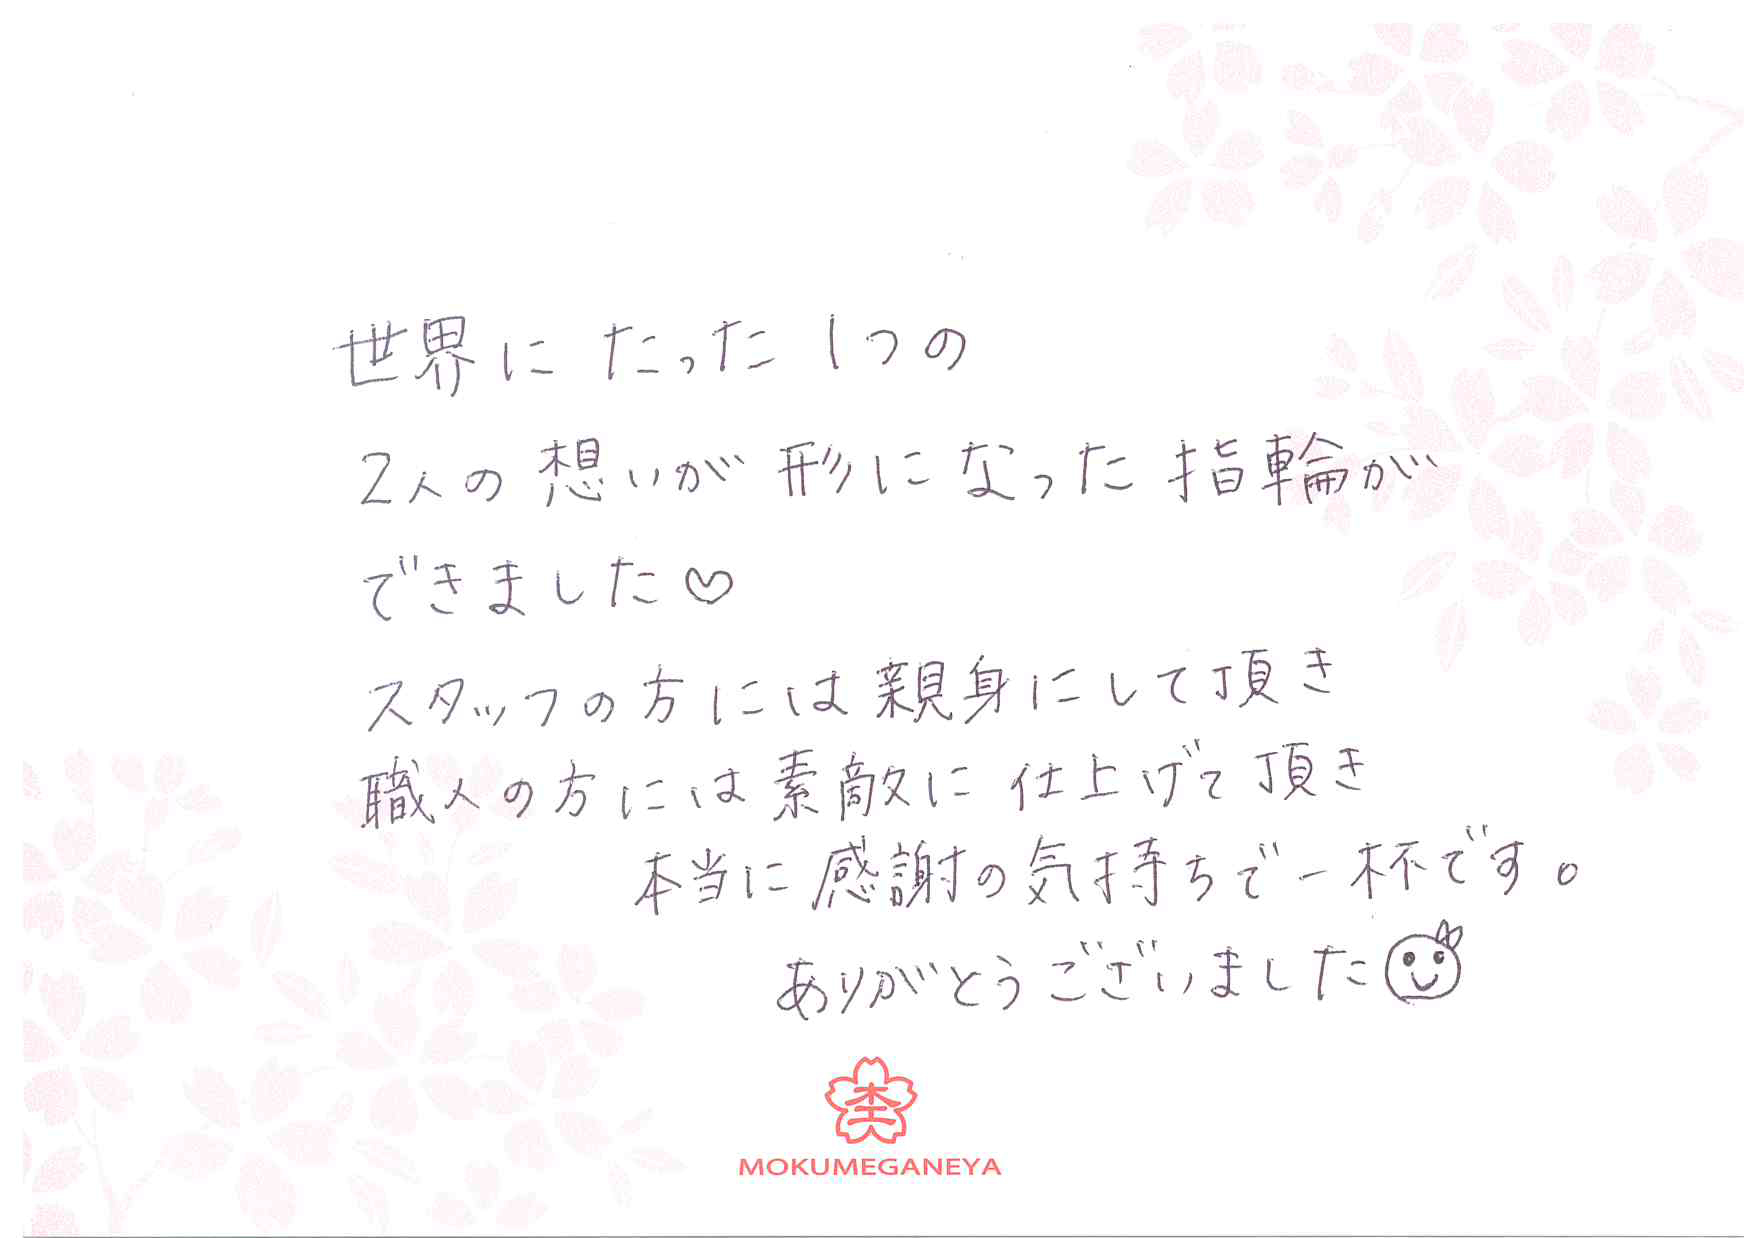 世界にたった1つの
2人の想いが形になった指輪が
できました♡
スタッフの方には親身にして頂き
職人の方には素敵に仕上げて頂き
本当に感謝の気持ちで一杯です。
ありがとうございました
杢
MOKUMEGANEYA